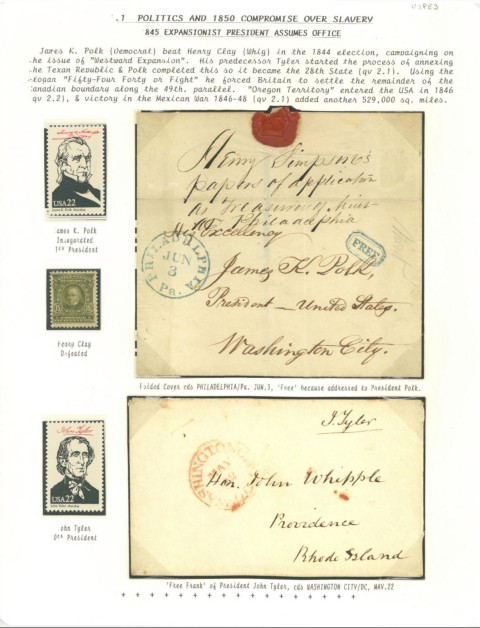 .1 POLITICS AND 1850 COMPROMISE OVER SLAVERY
845 EXPANSIONIST PRESIDENT ASSUMES OFFICE
James K. Polk (Democrat) beat Henry Clay (Whig) in the 1844 election, campaigning on
he issue of "Westward Expansion". His predecessor Tyler started the process of annexing
he Texan Republic & Polk completed this so it became the 28th State (qv 2.1). Using the
logan "Fifty-Four Forty or Fight" he forced Britain to settle the remainder of the
anadian boundary along the 49th. parallel. "Oregon Territory" entered the USA in 1846
qv 2.2), & victory in the Mexican War 1846-48 (qv 2.1) added another 529,000 sq. miles.
USA 22
James K. Polk
ames K. Polk
Inaugurated
President
Henry Clay
Defeated
Henry Simpson's
papers of application
as Treasurer of Mint
Philadelphia
His Excellency
PHILADELPHIA
JUN
3
Pa.
FREE
James K. Polk,
President United States,
Washington City.
Folded Cover cds PHILADELPHIA/Pa. JUN.3, 'Free' because addressed to President Polk.
John Tyler
USA 22
John Tyler
ohn Tyler
President
J. Tyler
WASHINGTON
MAY
Hon. John Whipple
Providence
Rhode Island
'Free Frank' of President John Tyler, cds WASHINGTON CITY/DC, MAY.22
+ + + + + + + + + + + + + + + + +